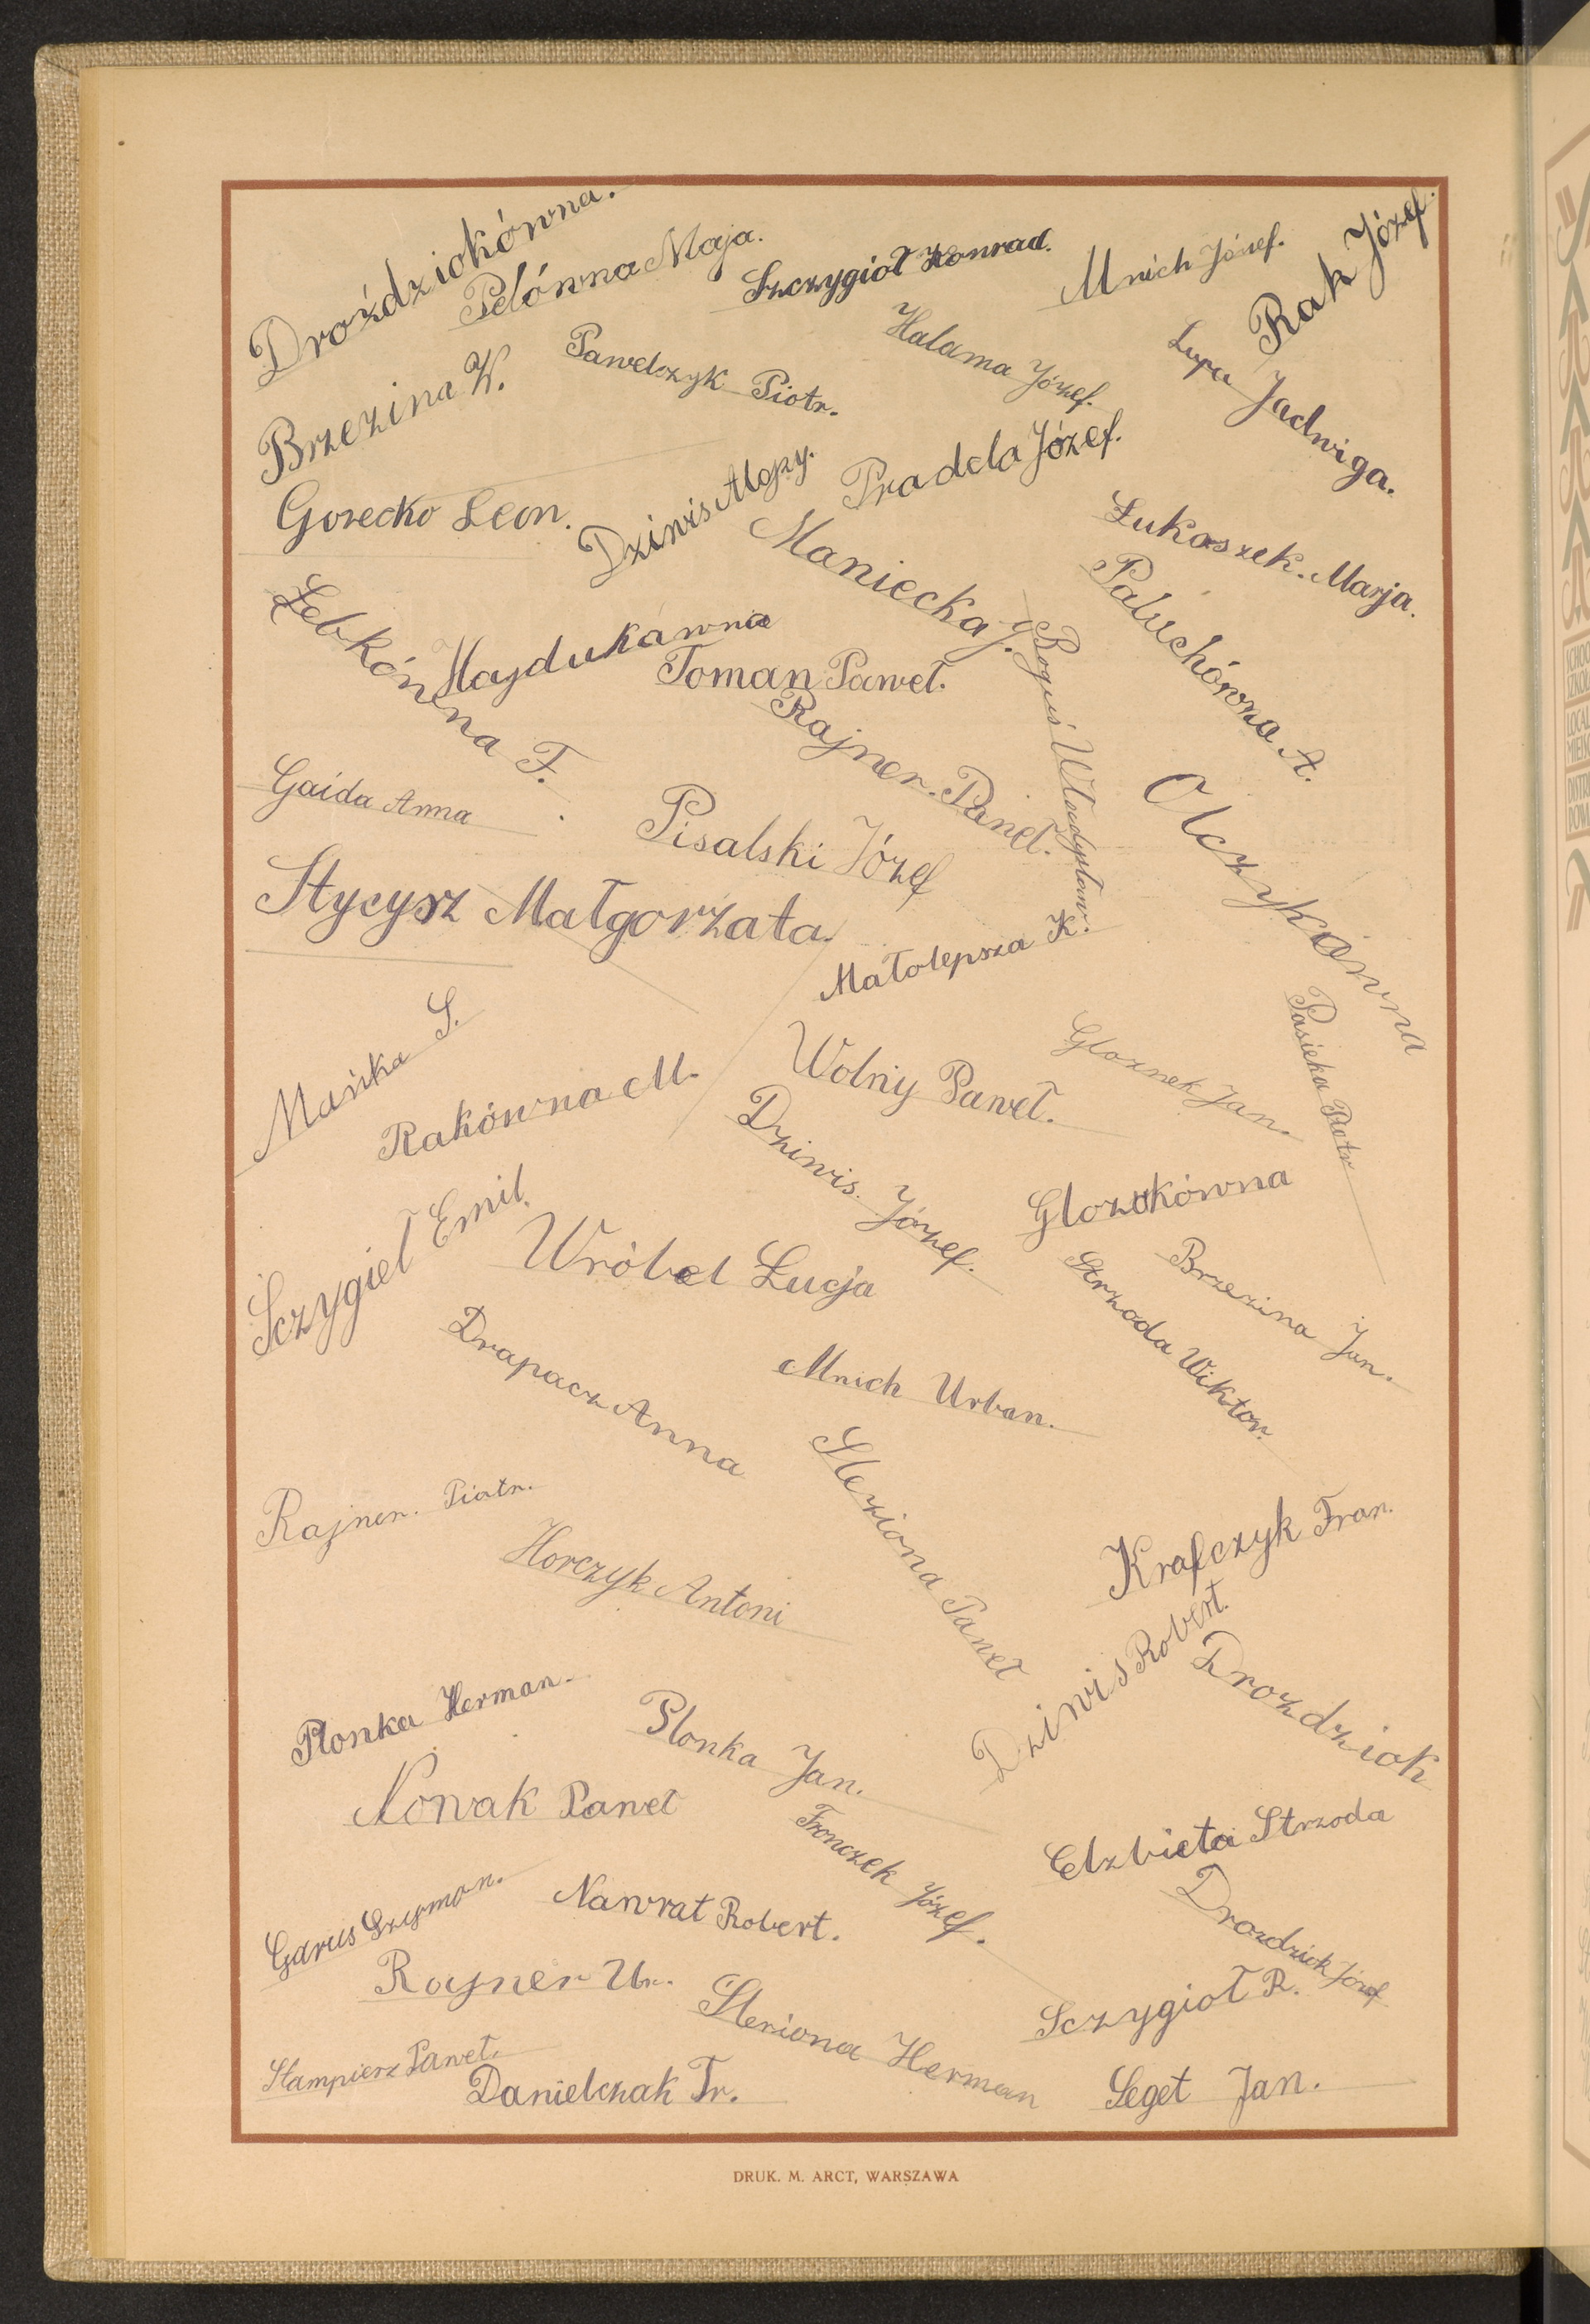 Droździokówna.
Pelówna Maja.
Szczygioł Konrad.
Mnich Józef.
Rak Józef.
Brzezina W.
Pawelczyk Piotr.
Halama Józef.
Lupa Jadwiga.
Gorecko Leon.
Dziwis
Pradela Józef.
Łukaszek. Marja.
Maniecka J.
Paluchówna A.
Lebkówna F.
Hajdukówna
Toman Paweł.
Boguś Władysław.
Rajner. Paweł.
Gaida Anna
Pisalski Józef
Olczykówna
Stycysz Małgorzata.
Małolepsza K.
Mańka S.
Rakówna M.
Wolny Paweł.
Gloznek Jan.
Pasieka Piotr
Dziwis. Józef.
Glozokówna
Sczygieł Emil.
Wróbel Łucja
Brzezina Jan.
Strzoda Wiktor.
Drapacz Anna
Mnich Urban.
Sleziona Paweł
Rajner. Piotr.
Horczyk Antoni
Krafczyk Fran.
Dziwis Robert.
Drozdziok
Płonka Herman.
Plonka Jan.
Nowak Paweł
Fronczek Józef.
Elzbieta Strzoda
Garus Szymon.
Nawrat Robert.
Drozdziok Józef
Rajner Ur.
Sleziona Herman
Sczygioł R.
Stampierz Paweł.
Danielczak Fr.
Seget Jan.
DRUK. M. ARCT, WARSZAWA